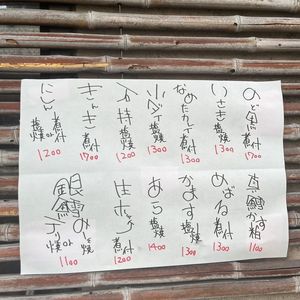 のど黒
煮付
1700
いさき
塩焼
1300
なめたカレイ
煮付
1300
小ダイ
塩焼
1300
塩焼
1200
きんき
煮付
1700
にしん
塩焼 or 煮付
1200
真鱈
かす
粕
1100
めばる
煮付
1300
かます
塩焼
1300
あら
塩焼
1400
生ホッケ
煮付
1200
銀鱈
みそ焼
or
1100